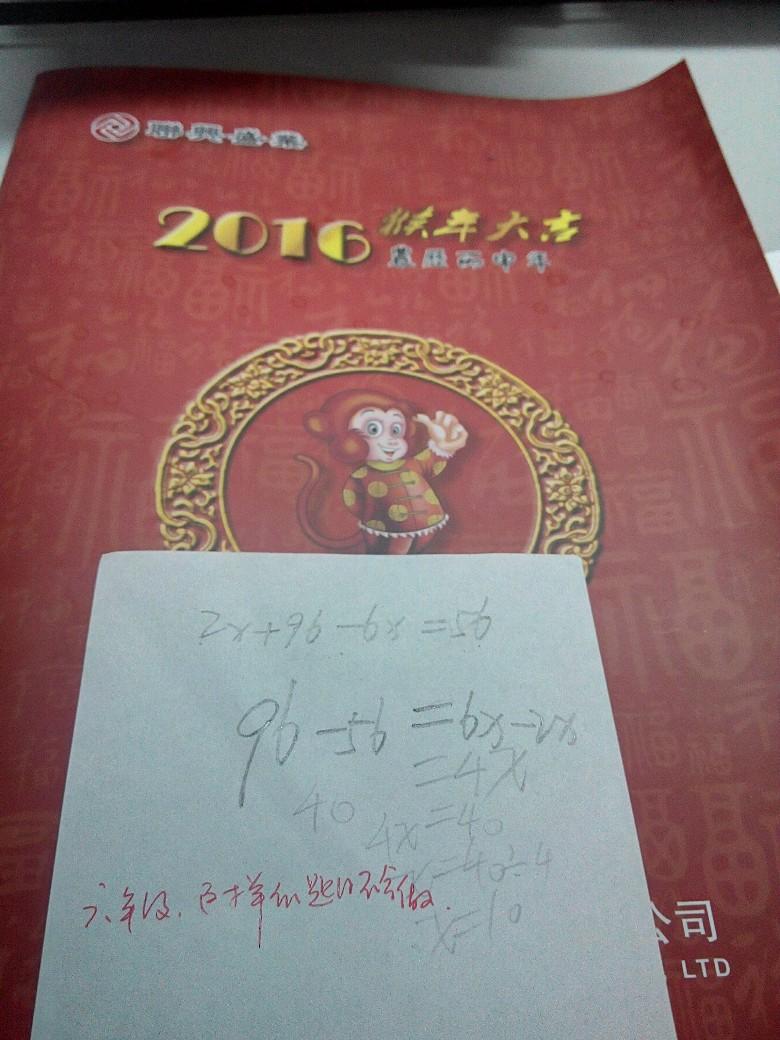 聯興盛業
2016 猴年大吉
農历丙申年
2x+96-6x=56
96-56=6x-2x
=4x
40
4x=40
x=40÷4
x=10
六年级、这样的题目不会做.
公司
LTD